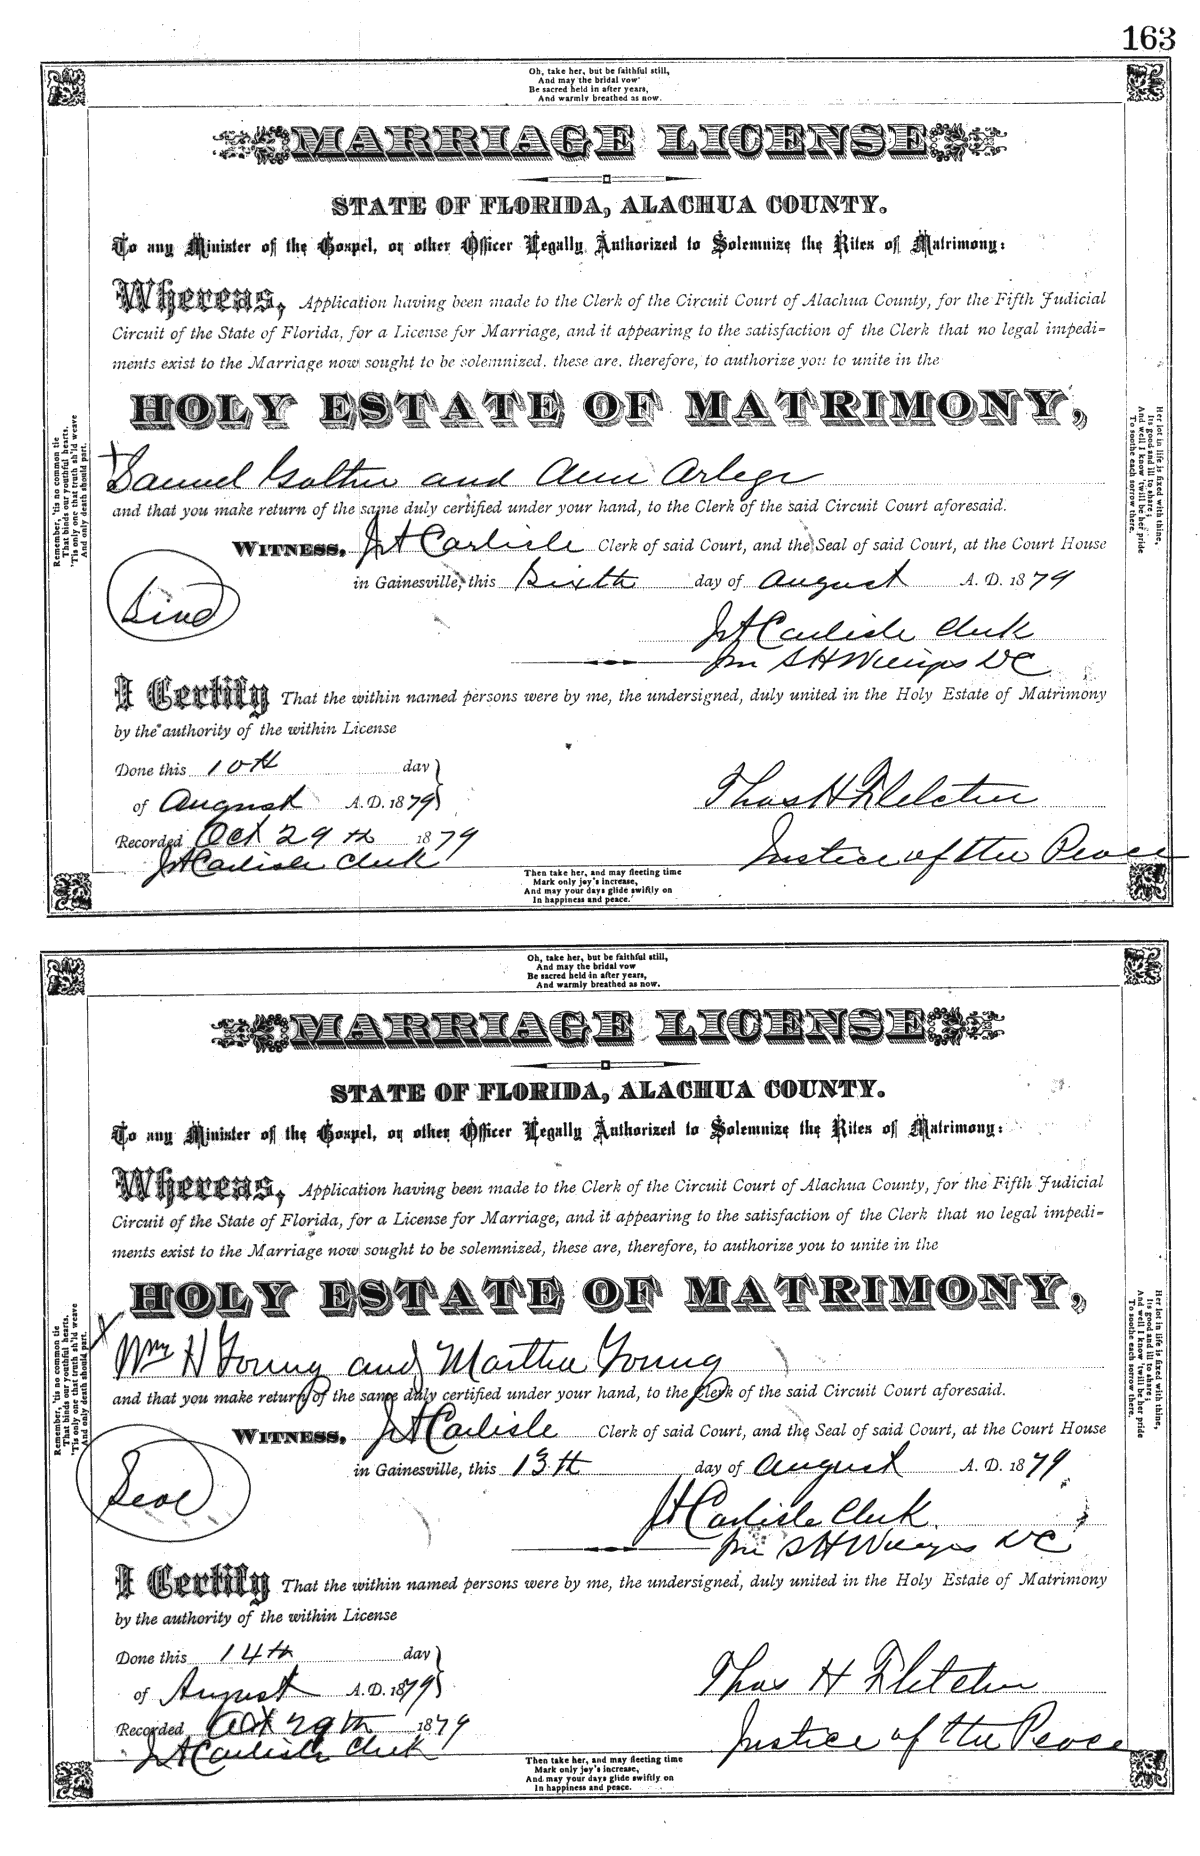 163
Oh, take her, but be faithful still,
And may the bridal vow
Be sacred held in after years,
And warmly breathed as now.
MARRIAGE LICENSE
STATE OF FLORIDA, ALACHUA COUNTY.
To any Minister of the Gospel, or other Officer Legally Authorized to Solemnize the Rites of Matrimony:
Whereas, Application having been made to the Clerk of the Circuit Court of Alachua County, for the Fifth Judicial
Circuit of the State of Florida, for a License for Marriage, and it appearing to the satisfaction of the Clerk that no legal impedi-
ments exist to the Marriage now sought to be solemnized, these are, therefore, to authorize you to unite in the
HOLY ESTATE OF MATRIMONY,
Samuel and Ann
and that you make return of the same duly certified under your hand, to the Clerk of the said Circuit Court aforesaid.
WITNESS, J A Carlisle Clerk of said Court, and the Seal of said Court, at the Court House
in Gainesville, this Sixth day of August A. D. 1879
Seal
J A Carlisle Clerk
S H DC
I Certify That the within named persons were by me, the undersigned, duly united in the Holy Estate of Matrimony
by the authority of the within License
Done this 10th day
of August A. D. 1879
Thos H Fletcher
Recorded Oct 29th 1879
Justice of the Peace
J A Carlisle Clerk
Remember, 'tis no common tie
That binds our youthful hearts,
'Tis only one that truth sh'ld weave
And only death should part.
Her lot in life is fixed with thine,
Its good and ill to share;
And well I know 'twill be her pride
To soothe each sorrow there.
Then take her, and may fleeting time
Mark only joy's increase,
And may your days glide swiftly on
In happiness and peace.
Oh, take her, but be faithful still,
And may the bridal vow
Be sacred held in after years,
And warmly breathed as now.
MARRIAGE LICENSE
STATE OF FLORIDA, ALACHUA COUNTY.
To any Minister of the Gospel, or other Officer Legally Authorized to Solemnize the Rites of Matrimony:
Whereas, Application having been made to the Clerk of the Circuit Court of Alachua County, for the Fifth Judicial
Circuit of the State of Florida, for a License for Marriage, and it appearing to the satisfaction of the Clerk that no legal impedi-
ments exist to the Marriage now sought to be solemnized, these are, therefore, to authorize you to unite in the
HOLY ESTATE OF MATRIMONY,
X Wm H Young and Martha Young
and that you make return of the same duly certified under your hand, to the Clerk of the said Circuit Court aforesaid.
WITNESS, J A Carlisle Clerk of said Court, and the Seal of said Court, at the Court House
in Gainesville, this 13th day of August A. D. 1879
Seal
J A Carlisle Clerk
S H DC
I Certify That the within named persons were by me, the undersigned, duly united in the Holy Estate of Matrimony
by the authority of the within License
Done this 14th day
of August A. D. 1879
Thos H Fletcher
Recorded Oct 29th 1879
Justice of the Peace
J A Carlisle Clerk
Remember, 'tis no common tie
That binds our youthful hearts,
'Tis only one that truth sh'ld weave
And only death should part.
Her lot in life is fixed with thine,
Its good and ill to share;
And well I know 'twill be her pride
To soothe each sorrow there.
Then take her, and may fleeting time
Mark only joy's increase,
And may your days glide swiftly on
In happiness and peace.